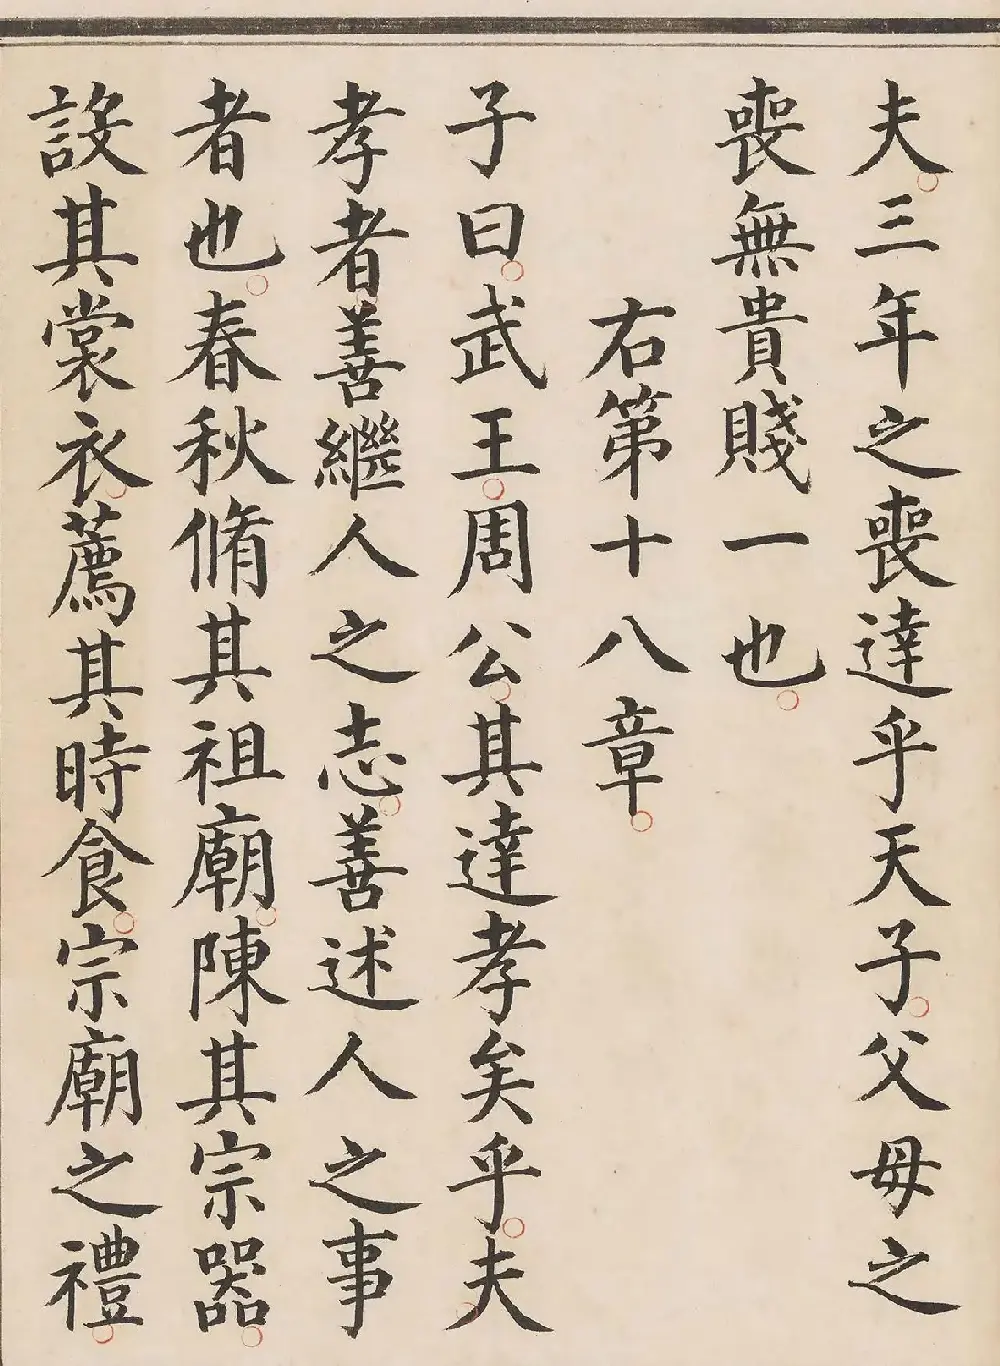 夫三年之喪達乎天子父母之
喪無貴賤一也
右第十八章
子曰武王周公其達孝矣乎夫
孝者善繼人之志善述人之事
者也春秋脩其祖廟陳其宗器
設其裳衣薦其時食宗廟之禮